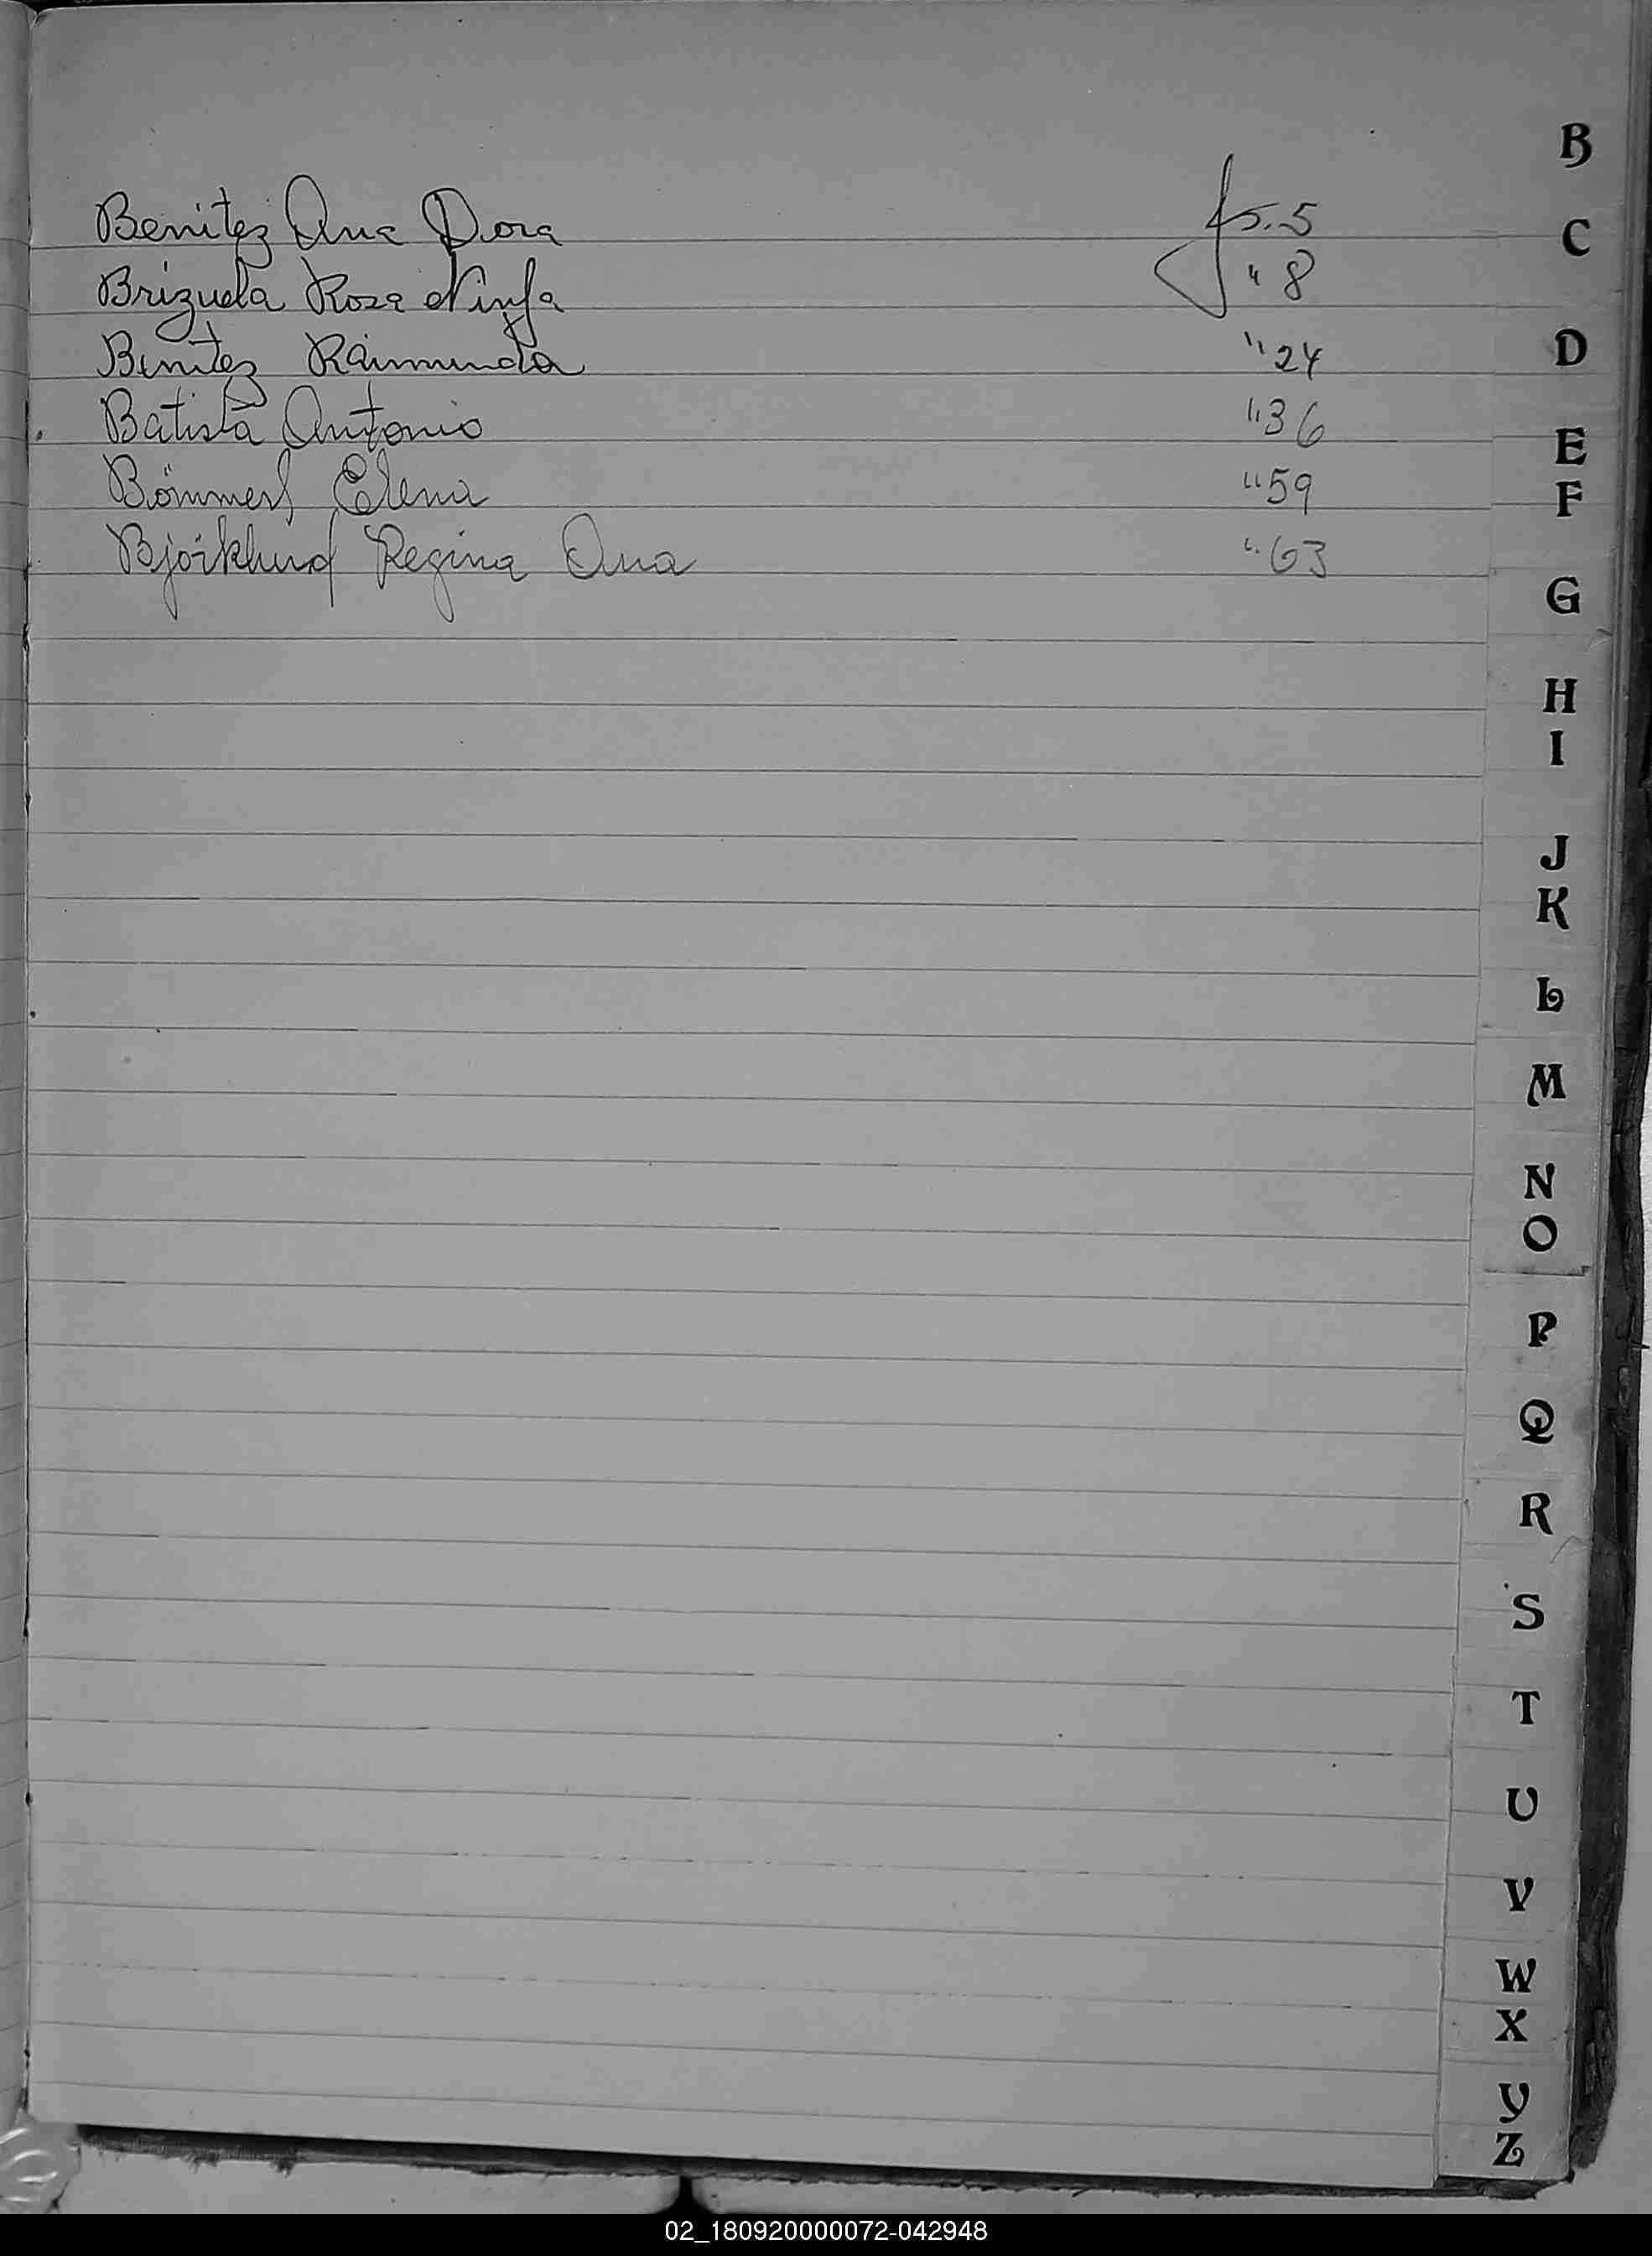 Benitez Ana Dora fs. 5
Brizuela Rosa Ninfa " 8
Benitez Raimunda " 24
Batista Antonio " 36
Elena " 59
Björklund Regina Ana " 63
B
C
D
E
F
G
H
I
J
K
L
M
N
O
P
Q
R
S
T
U
V
W
X
Y
Z
02_180920000072-042948